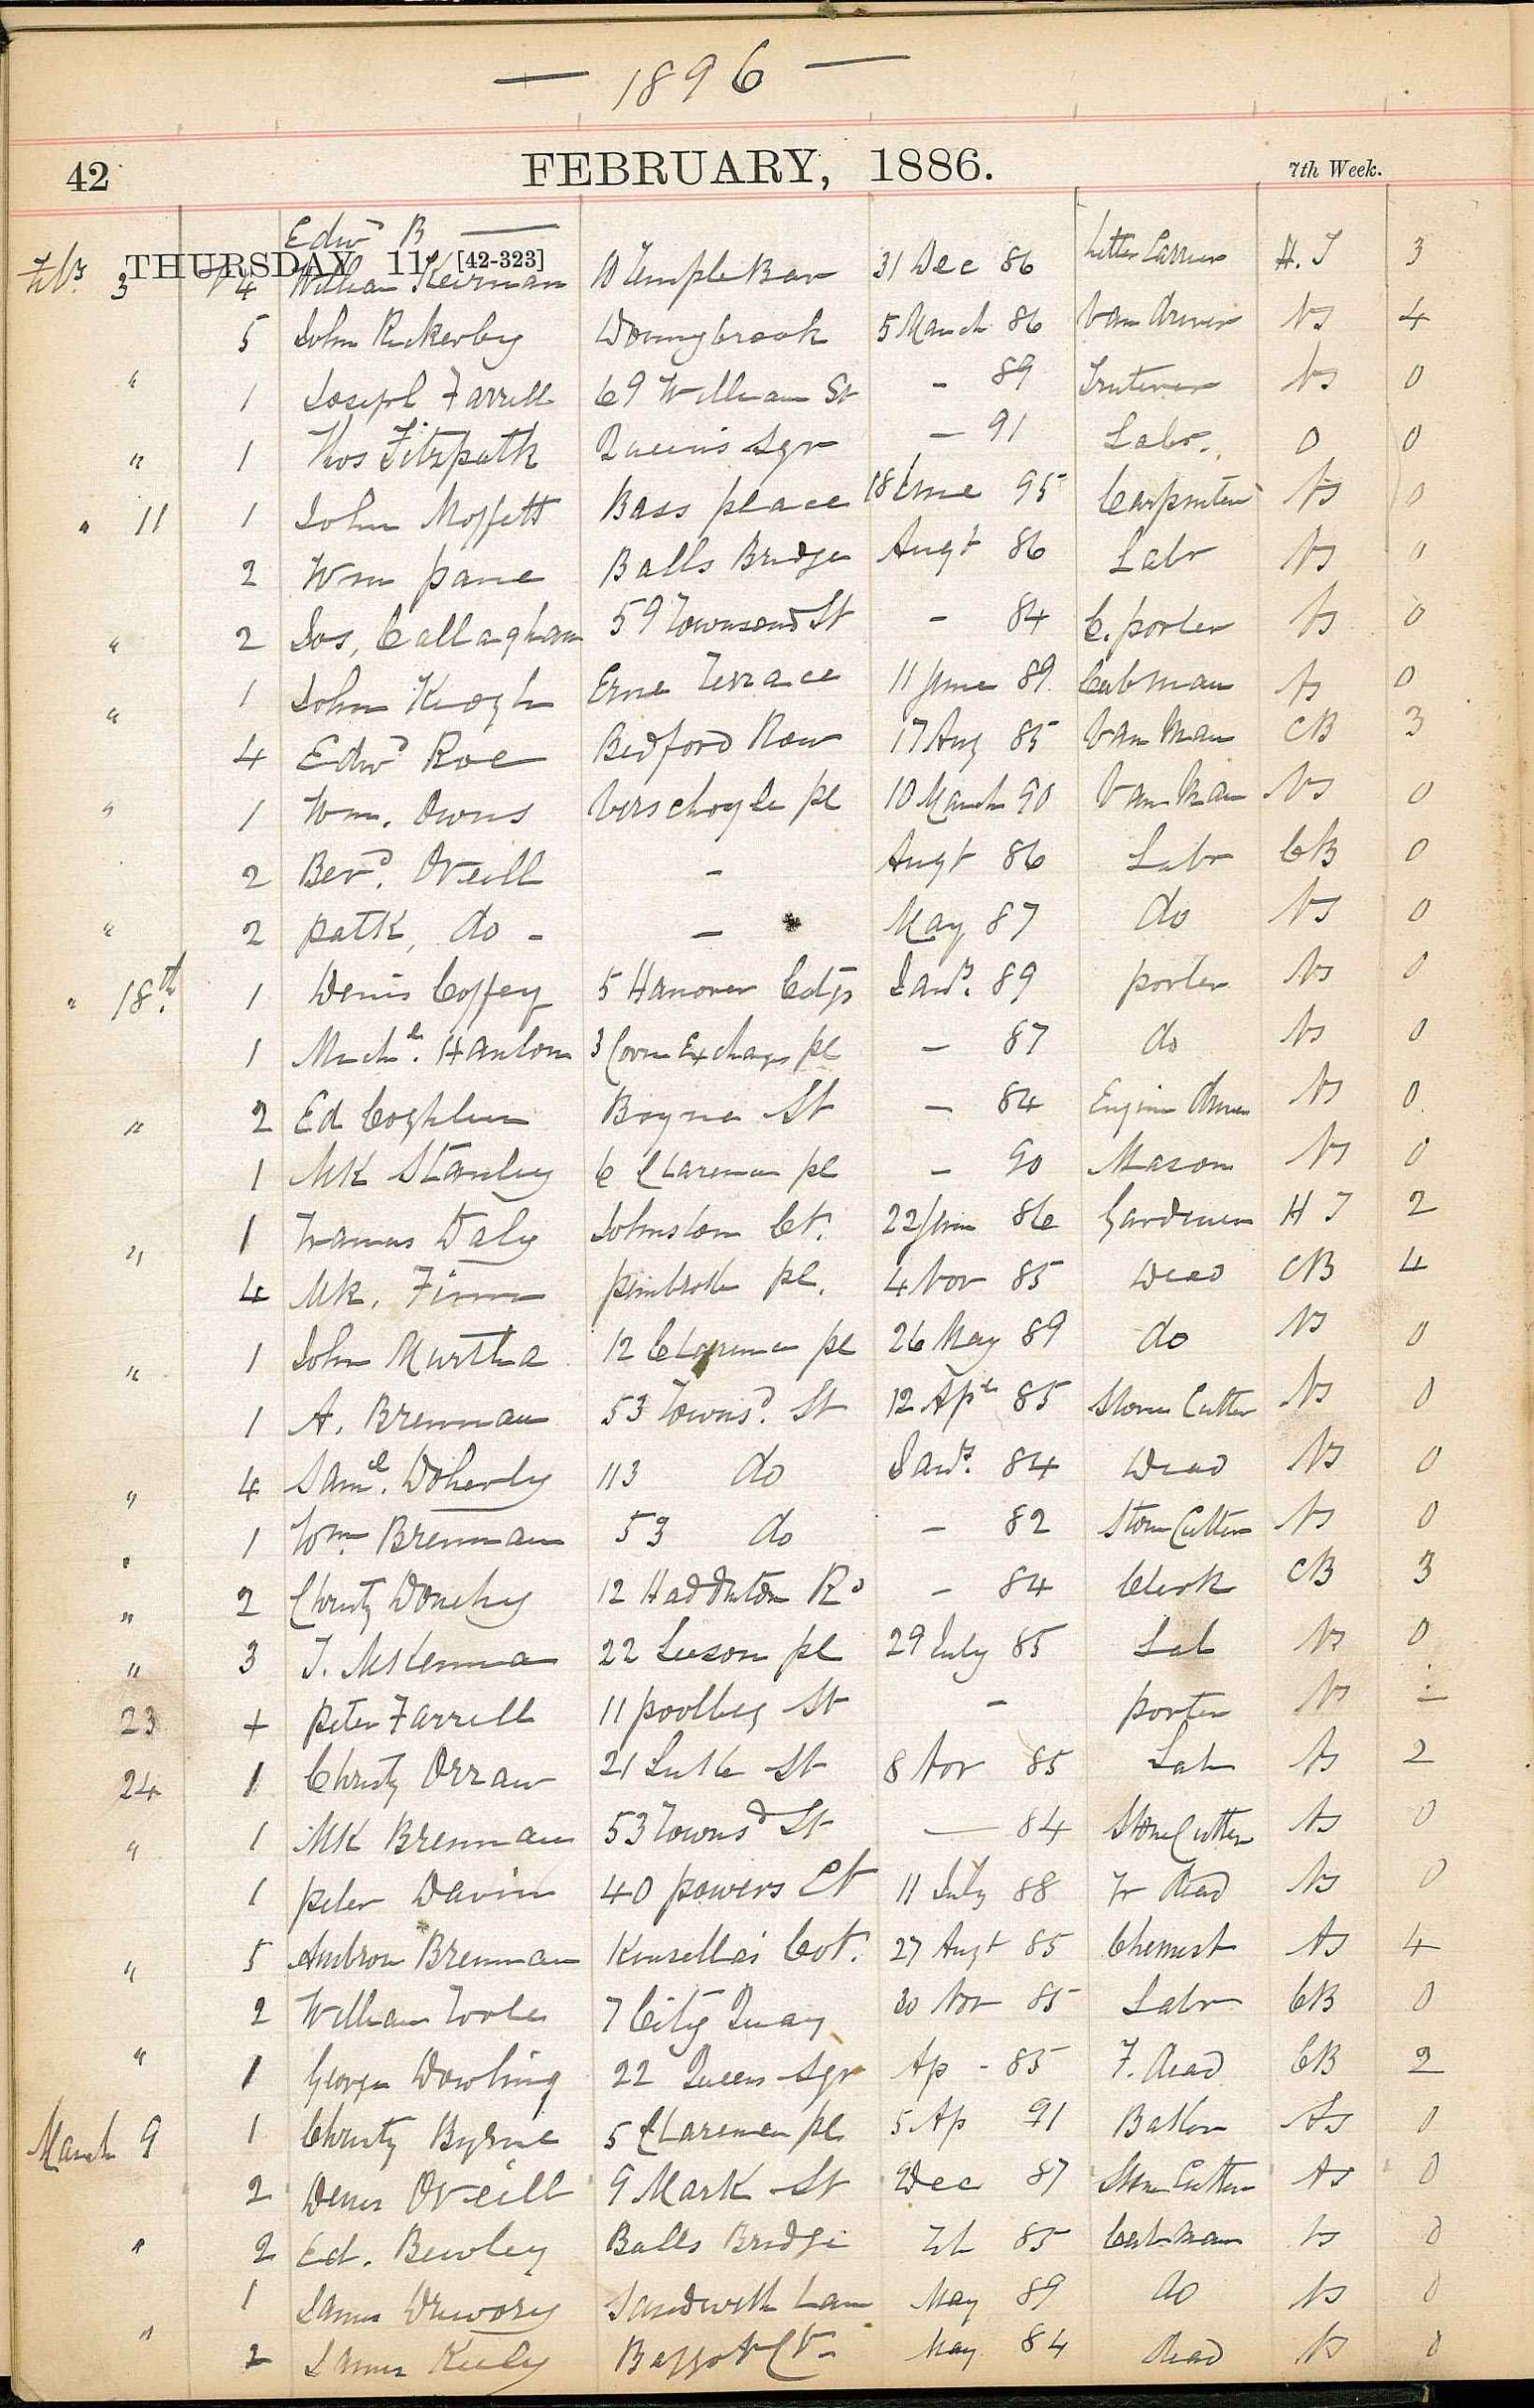 — 1896 —
42 FEBRUARY, 1886. 7th Week.
Edwd B —
THURSDAY 11 [42-323]
Feby 3 4 William Keirnan 10 Temple Bar 31 Dec 86 Letter Carrier H. T 3
5 John Rickerby Donnybrook 5 March 86 Van driver NS 4
" 1 Joseph Farrell 69 William St - 89 NS 0
" 1 Thos Fitzpatk Queen's Sqr - 91 Labr. 0 0
" 11 1 John Moffett Bass place 95 Carpenter NS 0
2 Wm pane Balls Bridge Augt 86 Labr NS 0
" 2 Jos, Callaghan 59 Townsend St - 84 C. porter NS 0
" 1 John Keogh Erne Terrace 11 June 89 Cabman NS 0
4 Edwd Roe Bedford Row 17 Aug 85 Van Man CB 3
" 1 Wm. Owns Verschoyle pl 10 March 90 Van Man NS 0
2 Berd. ONeill - Augt 86 Labr CB 0
" 2 patk, do - - May 87 do NS 0
" 18th. 1 Denis Coffey 5 Hanover Cotgs Jany. 89 porter NS 0
1 Michl. Hanlon 3 Corn Exchange pl - 87 do NS 0
" 2 Ed Coghlan Boyne St - 84 Engine driver NS 0
1 MK Stanley 6 Clarence pl - 90 Mason NS 0
" 1 Francis Daly Johnston Ct. 22 June 86 Gardener H T 2
4 Mk. Finn pembroke pl. 4 Nov 85 Dead CB 4
" 1 John Murtha 12 Clarence pl 26 May 89 do NS 0
1 A. Brennan 53 Townsd. St 12 Apl 85 Stone Cutter NS 0
" 4 Saml. Doherty 113 do Jany. 84 Dead NS 0
" 1 Wm. Brennan 53 do - 82 Stone Cutter NS 0
" 2 Christy Donohy 12 Haddinton Rd - 84 Clerk CB 3
" 3 J. McKenna 22 Leeson pl 29 July 85 Lab NS 0
23 + peter Farrell 11 poolbeg St - porter NS -
24 1 Christy Orraw 21 Luke St 8 Nov 85 Lab NS 2
" 1 MK Brennan 53 Townsd St — 84 Stone Cutter NS 0
1 peter Davin 40 powers Ct 11 July 88 Fr dead NS 0
" 5 Ambrose Brennan Kinsella's Cot. 27 Augt 85 Chemist NS 4
2 William Toole 7 City Quay 30 Nov 85 Labr CB 0
" 1 George Dowling 22 Queen Sqr Ap - 85 F. dead CB 2
March 9 1 Christy Byrne 5 Clarence pl 5 Ap 91 Baker NS 0
2 Denis ONeill 9 Mark St Dec 87 Stone Cutter NS 0
" 2 Ed. Bewley Balls Bridge Feb 85 Cabman NS 0
1 James Sandwith Lane May 89 do NS 0
" 2 James Kiely Baggot Ct - May 84 dead NS 0